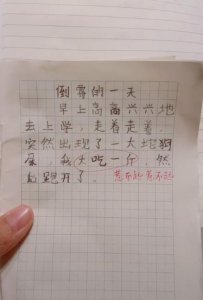 倒霉的一天
早上高高兴兴地
去上学，走着走着，
突然出现了一大坨狗
屎，我大吃一斤，然
后跑开了。惹不起惹不起